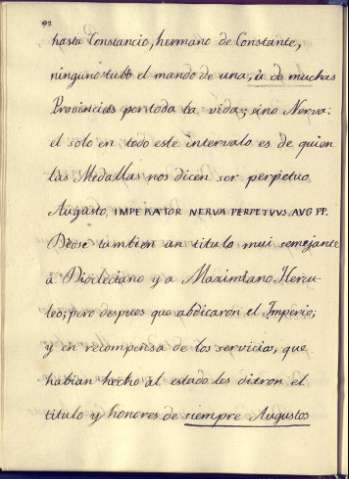 92
hasta Constancio, hermano de Constante,
ninguno tubo el mando de una, ù de muchas
Provincias por toda la vida; sino Nerva:
el solo en todo este intervalo es de quien
las Medallas nos dicen ser perpetuo
Augusto, IMPERATOR NERVA PERPETVVS AVG PP.
Diose tambien un titulo mui semejante
à Diocleciano y a Maximiano Hercu-
leo; pero despues que abdicaron el Imperio;
y en recompensa de los servicios, que
habian hecho al estado les dieron el
titulo y honores de siempre Augustos